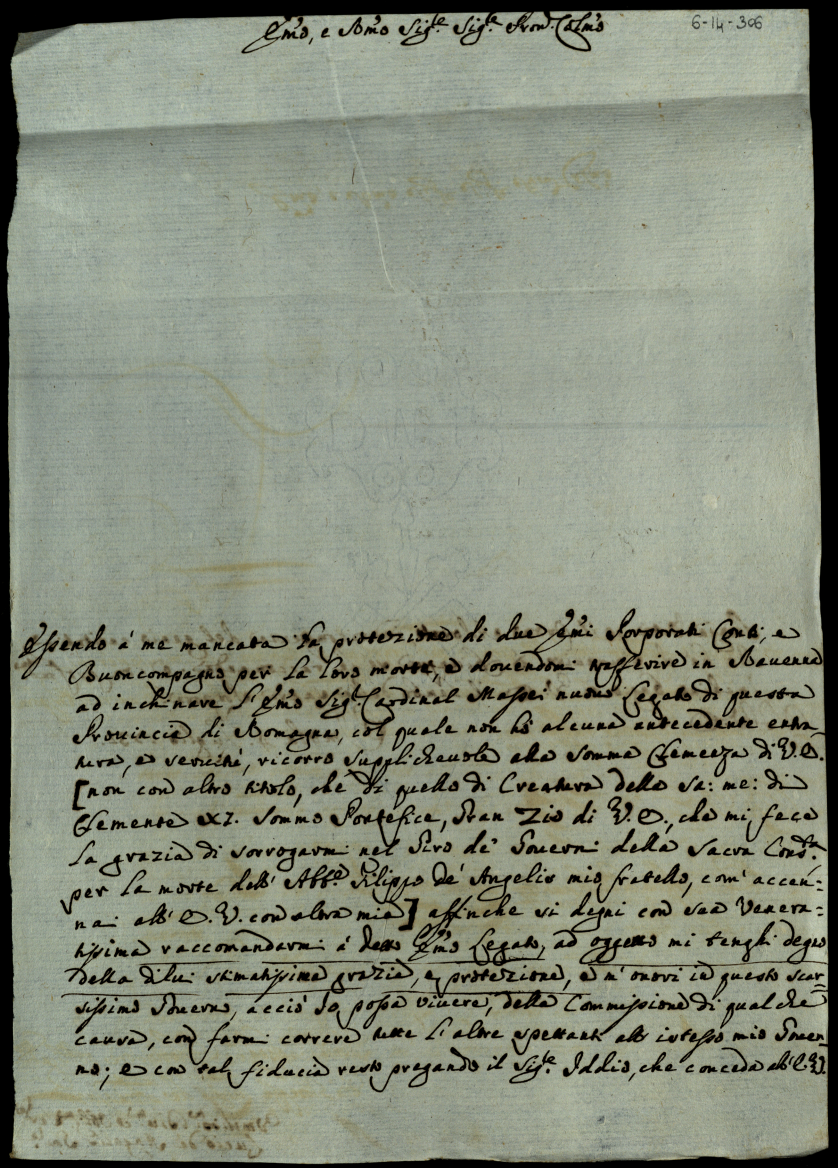 6-14-306
Em̃o, e Rm̃o Sig.re Sig.re Pron. Colm̃o
Essendo à me mancata la protezione di due Em̃i Porporati Conti, e
Buoncompagno per la loro morte, e dovendomi trasferire in Ravenna
ad inchinare l'Em̃o Sig.r Cardinal Massei nuovo Legato di questa
Provincia di Romagna, col quale non hò alcuna antecedente entra-
tura, e servitù, ricorro supplichevole alla somma Clemenza di V.E.
[non con altro titolo, che di quello di Creatura della sa: me: di
Clemente XI. Sommo Pontefice, Gran Zio di V.E., che mi fece
la grazia di sorrogarmi nel Giro de' Governi della Sacra Cons.ta
per la morte dell'Abb.e Filippo de' Angelis mio fratello, com'accen-
nai all'E.V. con altra mia] affinche si degni con sua Venera-
tissima raccomandarmi à detto Em̃o Legato, ad oggetto mi tenghi degno
della di lui stimatissima grazia, e protezione, e m'onori in questo scar-
sissimo Governo, acciò Io possa vivere, della Commissione di qualche
causa, con farmi correre tutte l'altre spettanti allo istesso mio Gover-
no; e con tal fiducia resto pregando il Sig.re Iddio, che conceda all'E.V.